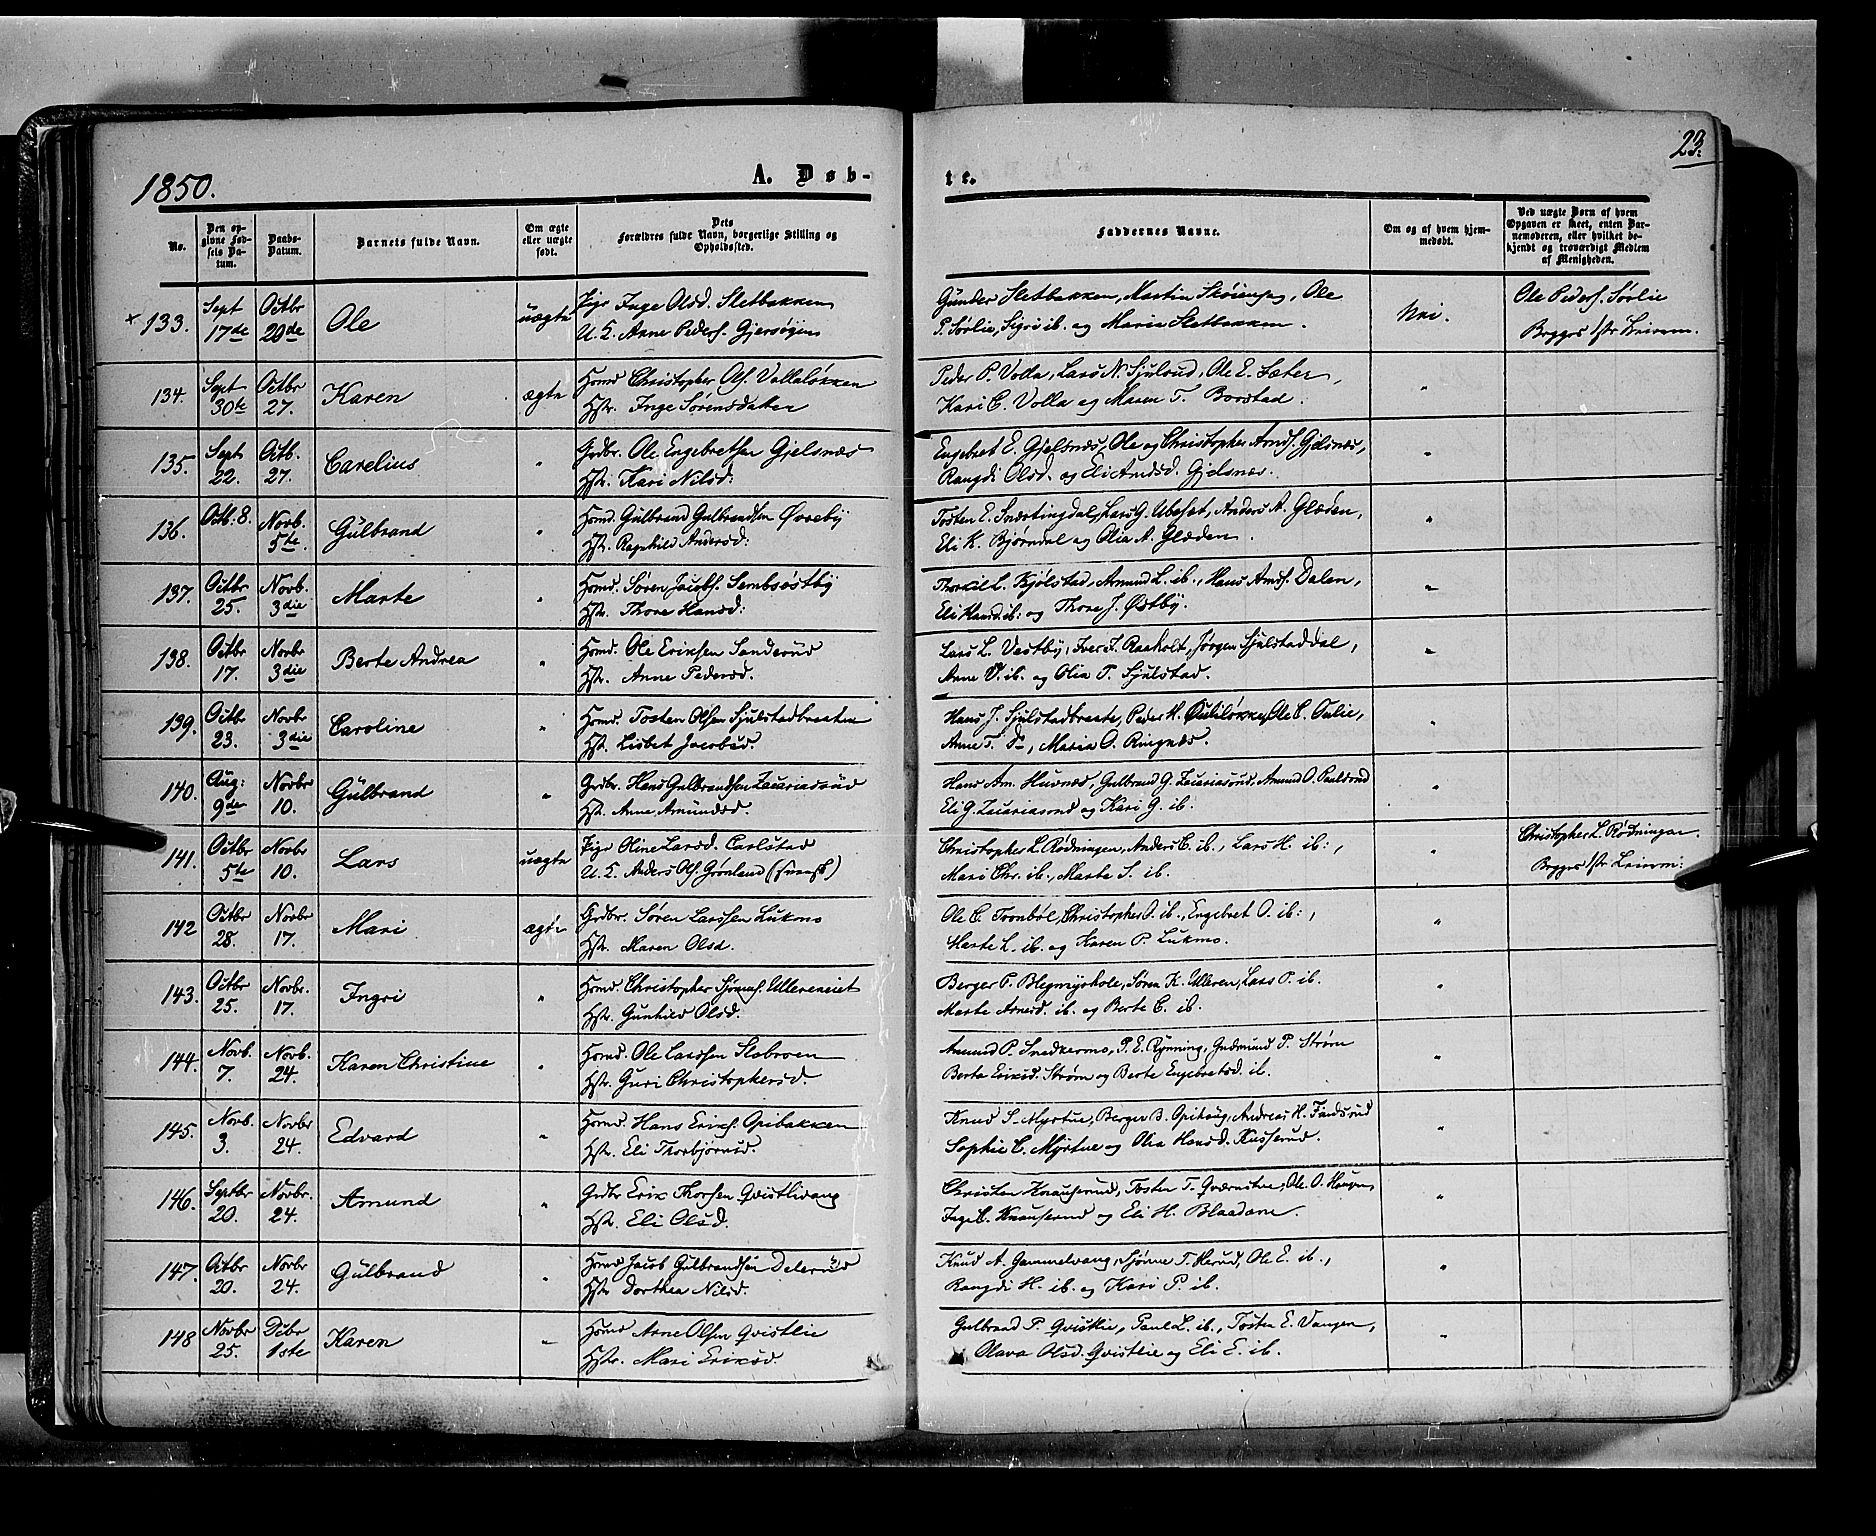 1850.
A. Døb-
te.
23.
No.
Den op-
givne Fød-
sels Da-
tum.
Daabs-
Datum.
Barnets fulde Navn.
Om ægte
eller uægte
født.
Dets
Forældres fulde Navn, borgerlige Stilling og
Opholdssted.
Faddernes Navne.
Om og af hvem hjem-
medøbt.
Ved uægte Børn af hvem
Opgaven er skeet, enten Bar-
nemoderen, eller hvilket be-
kjendt og troværdigt Medlem
af Menigheden.
× 133. Sept 17de Octbr 20de Ole uægte Pige Inge Olsd. Sletbakken
U. K. Arne Peders. Gjersøyen
Gunder Sletbakken, Martin, Ole
P. Sørlie, Sigri ib. og Maria Sletbakken.
Nei.
Ole Peders. Sørlie
Begges 1ste Leierm.
134. Sept 30te Octbr 27. Karen ægte Hsmd Christopher Ols. Vollaløkken
Hstr. Inge Sørensdatter
Peder P. Volla, Lars N. Sjulsrud, Ole E. Sæter,
Kari C. Volla og Maren T. Borstad.
135. Sept 22. Octb. 27. Carelius " Grdbr. Ole Engebretsen Gjelsnæs
Hstr. Kari Nilsd:
Engebret E. Gjelsnæs, Ole og Christopher Arnds. Gjelsnæs,
Rangdi Olsd. og Eli Arndsd. Gjelsnæs.
136. Octb: 8. Novb. 5te Gulbrand " Hsmd. Gulbrand Gulbrandsen Øvreby
Hstr. Ragnhild Andersd:
Tosten E. Snertingdal, Lars G. Ubeset, Anders A. Glæden,
Eli K. Bjørndal og Olia A. Glæden.
137. Octbr 25. Novb. 3die Marte " Hsmd. Søren Jacobs. Sembsøstby
Hstr. Thore Hansd:
Thorkil L. Kjølstad, Amund L. ib., Hans Amds. Dalen,
Eli Hansd. ib: og Thore J. Østby.
138. Octbr 17. Novbr 3die Berte Andrea " Hsmd. Ole Eriksen Sanderud
Hstr. Anne Pedersd.
Lars L. Vestby, Iver I. Raaholt, Jørgen Sjulstaddal,
Anne ib. og Olia P. Sjulstad.
139. Octbr 23. Novbr 3die Caroline " Hsmd. Tosten Olsen Sjulstadbraaten
Hst. Lisbet Jacobsd.
Hans J. Sjulstadbraate, Peder H. Ouliløkke, Ole C. Oulie,
Anne T. Do, Maria O. Ringnæs.
140. Aug: 9de Novbr 10. Gulbrand " Grdbr. Hans Gulbrandsen Zacariasrud
Hst. Anne Amundsd
Hans Am. Huvnæs, Gulbrand G. Zacariasrud, Amund O. Paulsrud
Eli G. Zacariasrud og Kari G. ib.
141. Octbr 5te Novbr 10. Lars uægte Pige Oline Larsd. Carlstad
U. K. Anders Ols. Grønland (svensk)
Christopher L. Rødningen, Anders C. ib., Lars H. ib:,
Mari Chr. ib., Marte S. ib.
"
Christopher L. Rødningen.
Begges 1ste Leierm:
142 Octbr 28. Novbr 17. Mari ægte Grdbr. Søren Larssen Lukmo
Hstr. Maren Olsd.
Ole C. Trønbøl, Christopher O. ib., Engebret O. ib:,
Marte L. ib. og Karen P. Lukmo.
143. Octbr 25. Novbr. 17. Ingri " Hsmd. Christopher Sjønns. Ullereneiet
Hstr. Gunhild Olsd.
Berger P. Blegmyrhole, Søren K. Ulleren, Lars P. ib.
Marte Arnesd. ib. og Berte C. ib.
144. Novb. 7. Novb. 24. Karen Christine " Hsmd. Ole Larssen Slobroen
Hstr. Guri Christophersd.
Amund P. Snedkermo, P. E. Rynning, Gudmund P. Strøm
Berta Eriksd. Strøm og Berte Engebretsd. ib.
145. Novb. 3. Novbr 24. Edvard " Hsmd. Hans Eriks. Opibakken
Hstr. Eli Thorbjørnsd.
Knud S. Myrtue, Berger B. Opihaug, Andreas H. Findsrud
Sophie C. Myrtue og Olia Hansd. Kusserud.
146. Septbr 20. Novbr. 24. Amund " Grdbr Erik Thorsen Qvistlivang
Hst. Eli Olsd.
Christen Knauserud, Tosten T. Qværnstue, Ole O. Haugen,
Inge C. Knauserud og Eli H. Blaadane.
147. Octbr 20. Novbr 24. Gulbrand " Hsmd Jacob Gulbrandsen Delerud
Hstr Dorthea Nilsd.
Knud A. Gammelvang, Sjønne T. Herud, Ole E. ib.,
Rangdi H. ib. og Kari P. ib.
148 Novbr 25. Dcbr 1ste Karen " Hsmd Arne Olsen Qvistlie
Hstr. Mari Eriksd.
Gulbrand P. Qvistlie, Paul L. ib., Tosten E. Vangen,
Olava Olsd. Qvistlie og Eli E. ib.